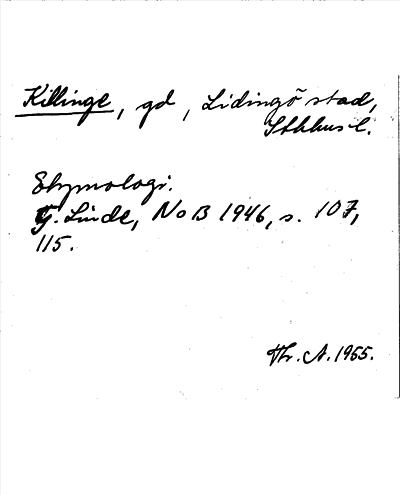 Killinge, gd, Lidingö stad,
Sthlms l.
Etymologi.
G. Linde, NoB 1946, s. 107,
115.
Hr. A. 1955.